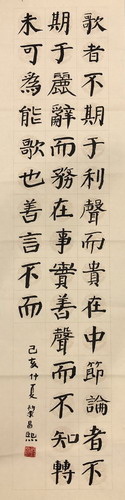 歌者不期于利聲而貴在中節論者不
期于麗辭而務在事實善聲而不知轉
未可為能歌也善言不而
己亥仲夏